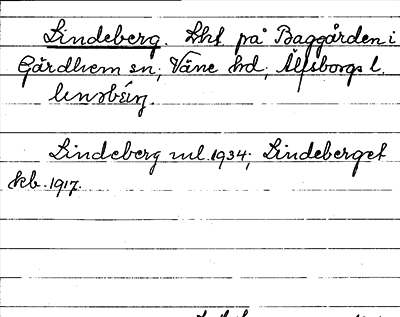 Lindeberg. Lht på Baggården i
Gärdhem sn; Väne hd; Älfsborgs l.
Lindeberg ml. 1934; Lindeberget
kb. 1917.